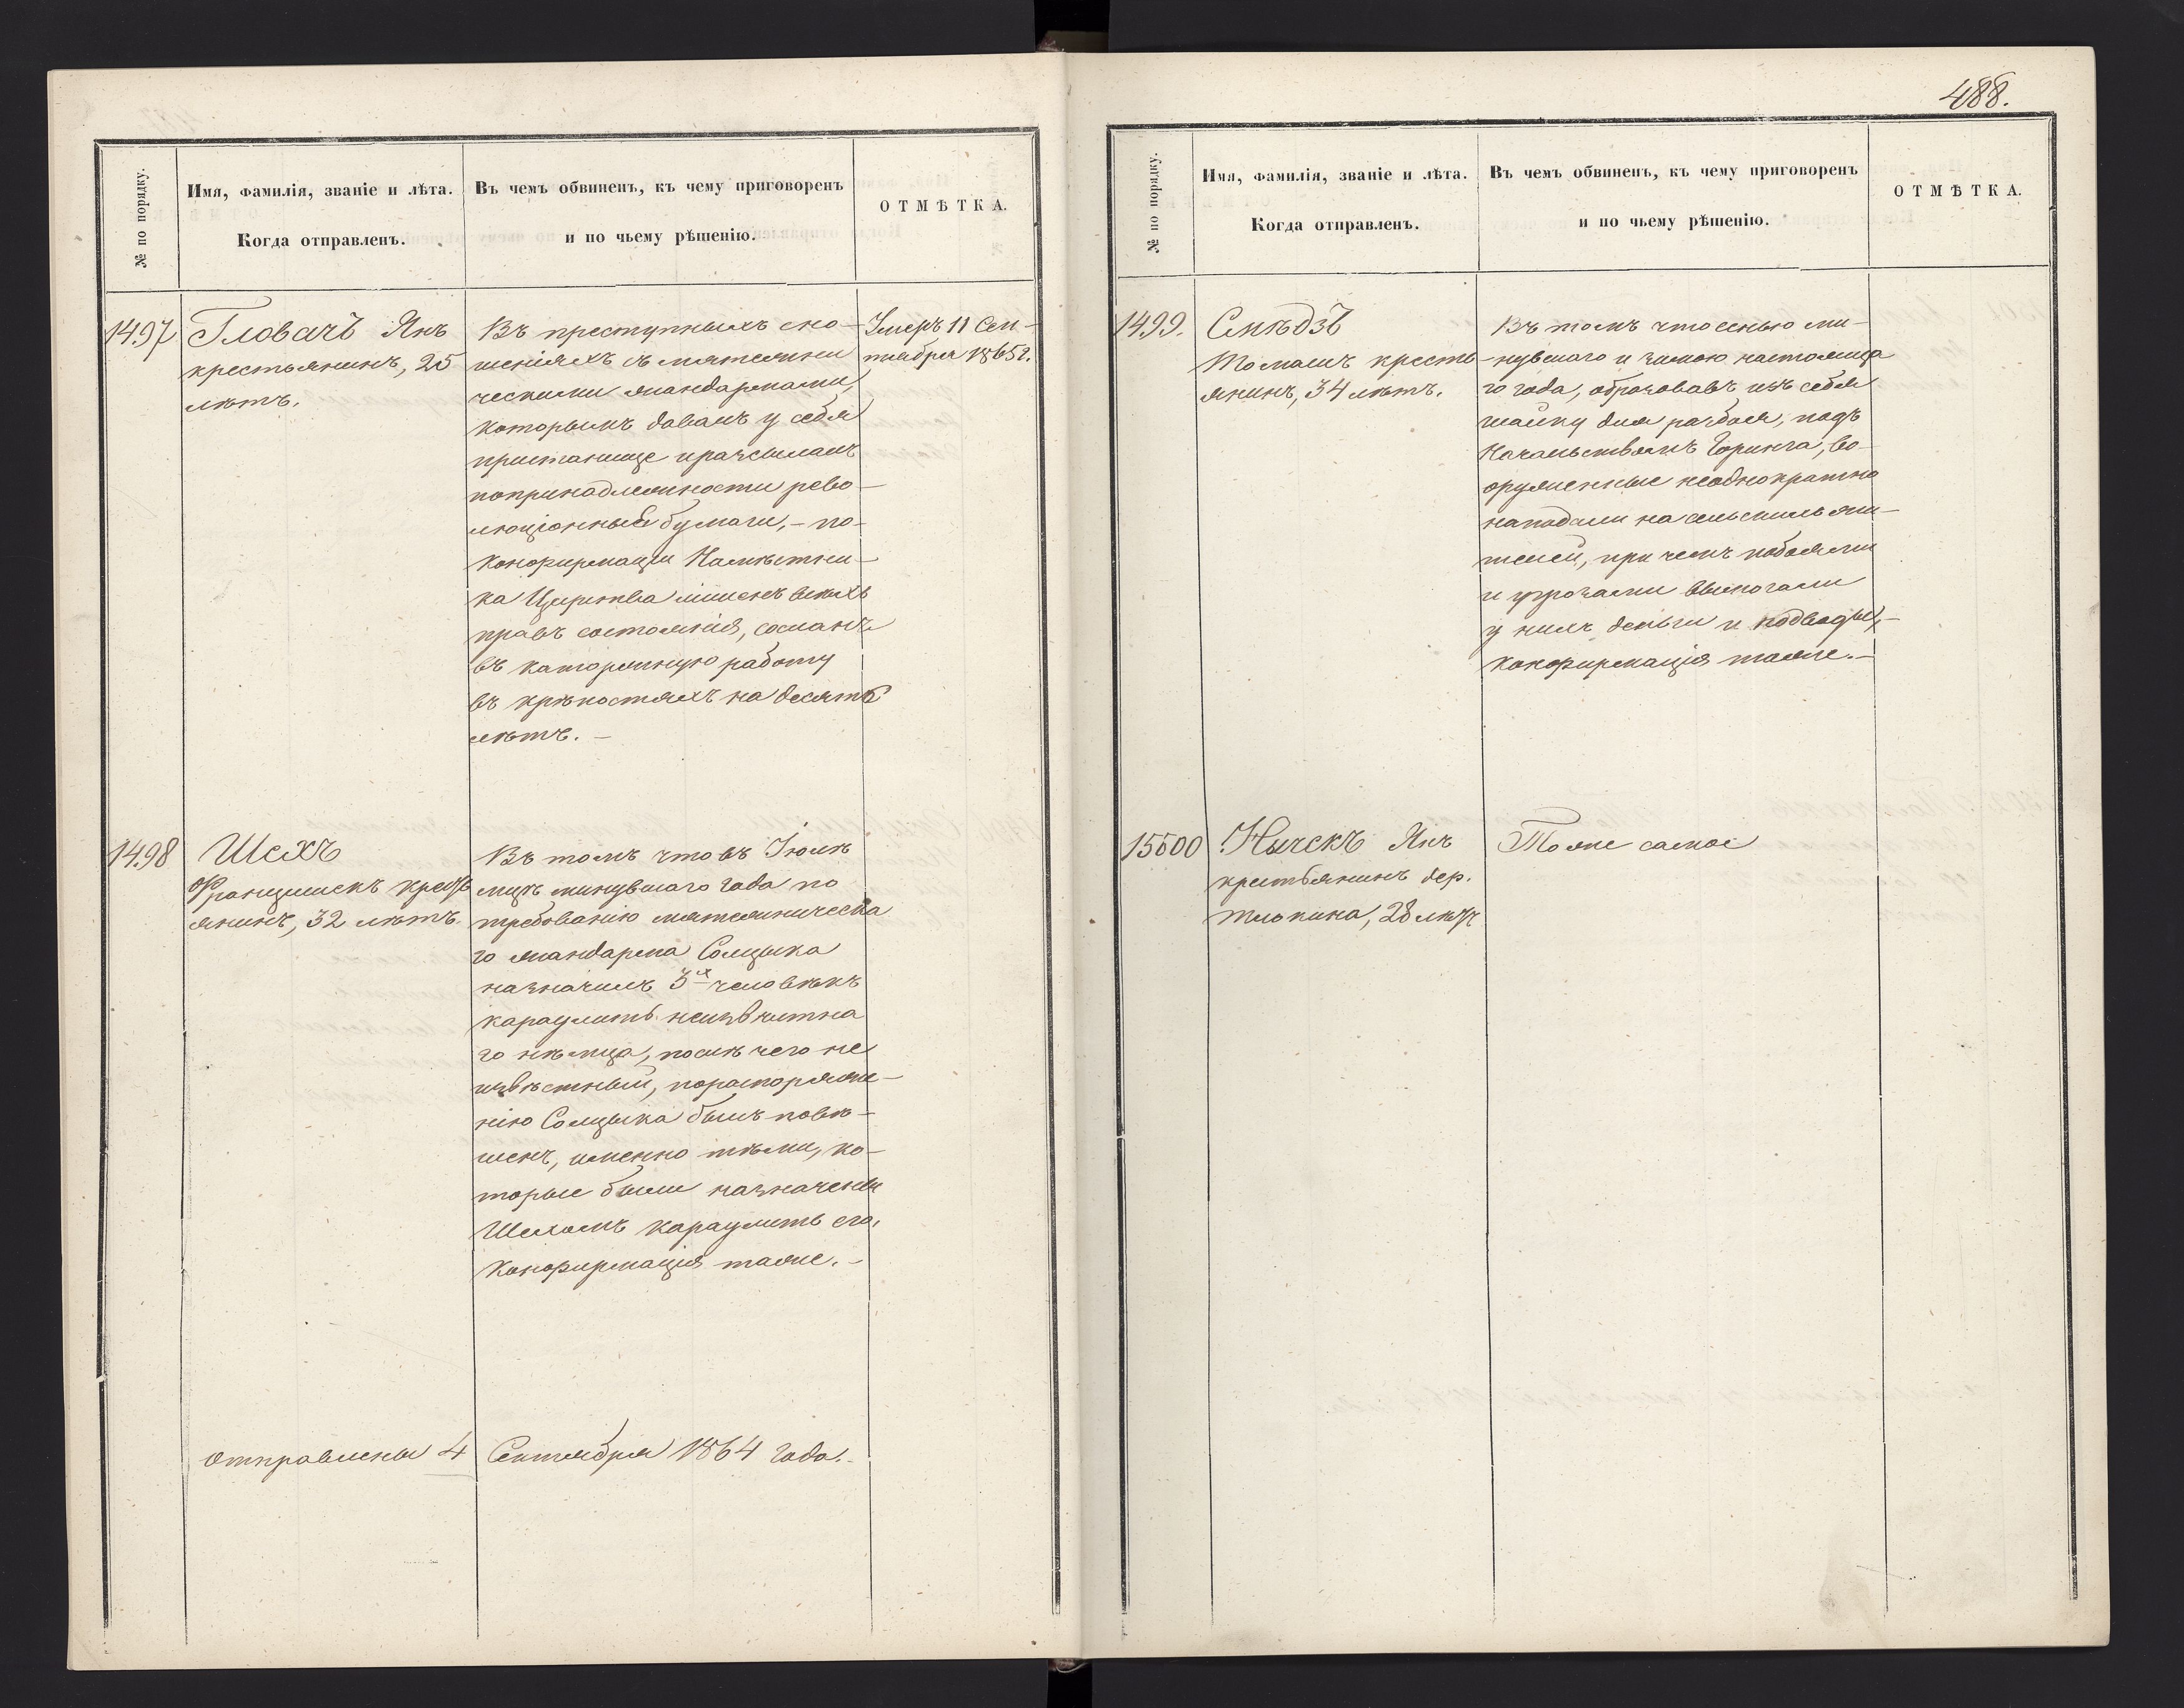 488.
№ по порядку.
Имя, фамилія, званіе и лѣта.
Когда отправленъ.
Въ чемъ обвиненъ, къ чему приговоренъ
и по чьему рѣшенію.
ОТМѢТКА.
1497
Гловачъ Янъ
крестьянинъ, 25
лѣтъ.
Въ преступныхъ сно-
шеніяхъ съ мятежни
ческими жандармами,
которымъ давалъ у себя
пристанище иразсылалъ
попринадлежности рево-
люціонныя бумаги, - по-
конфирмаціи Намѣстни-
ка Царства лишенъ всѣхъ
правъ состоянія, сосланъ
въ каторжную работу
въ крѣпостяхъ на десять
лѣтъ. -
Умеръ 11 Сен-
тября 1865 г.
1498
Шехъ
Францишекъ кресть
янинъ, 32 лѣтъ.
Въ томъ что въ Іюлѣ
мцѣ минувшаго года по
требованію мятежническа
го жандарма Солцыка
назначилъ 3х человѣкъ
караулить неизвѣстна
го нѣмца, послѣ чего не
извѣстный, пораспоряже-
нію Солцыка былъ повѣ-
шенъ, именно тѣми, ко-
торые были назначены
Шехомъ караулить его,
Конфирмація таже. -
отправлены 4 Сентября 1864 года. -
№ по порядку.
Имя, фамилія, званіе и лѣта.
Когда отправленъ.
Въ чемъ обвиненъ, къ чему приговоренъ
и по чьему рѣшенію.
ОТМѢТКА.
1499.
Смѣдзь
Томашъ кресть-
янинъ, 34 лѣтъ.
Въ томъ что осенью ми-
нувшаго и зимою настояща
го года, образовавъ изъ себя
шайку для разбоя, подъ
Начальствомъ Горинга, во-
оруженные неоднократно
нападали на сельскихъ жи-
телей, при чемъ побоями
и угрозами вымогали
у нихъ деньги и подводы, -
конфирмація таже. -
15500
Нычекъ Янъ
крестьянинъ дер.
Тлокина, 28 лѣтъ
Тоже самое